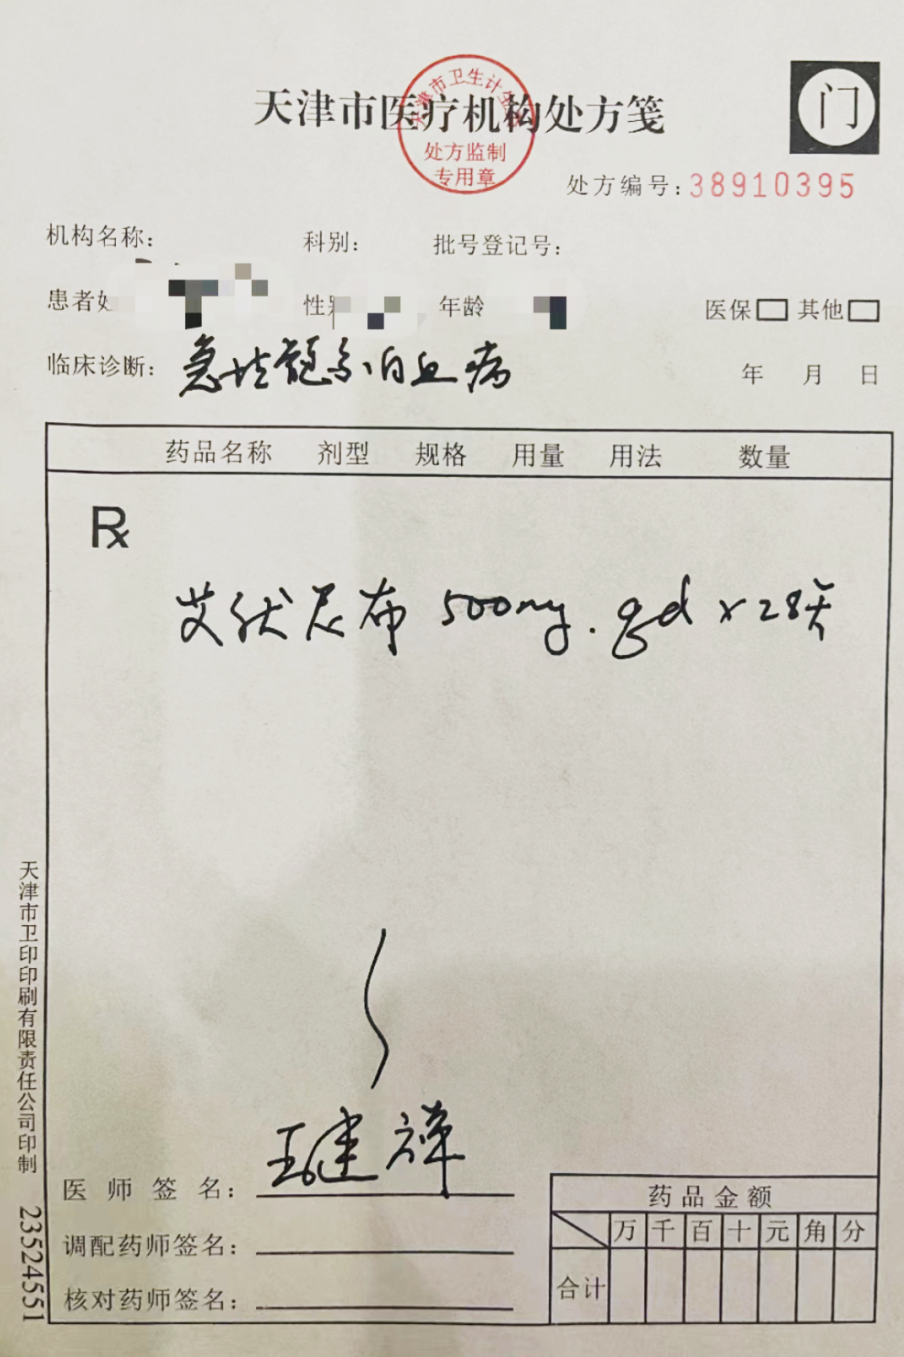 天津市医疗机构处方笺
门
天津市卫生计生
处方监制
专用章
处方编号:38910395
机构名称:
科别:
批号登记号:
患者
年龄
医保 其他
临床诊断: 急性髓系白血病
年 月 日
药品名称 剂型 规格 用量 用法 数量
Rx
艾伏尼布 500mg. qd x 28天
医师签名: 王建祥
调配药师签名:
核对药师签名:
药品金额
万 千 百 十 元 角 分
合计
天津市卫印印刷有限责任公司印制 23524551